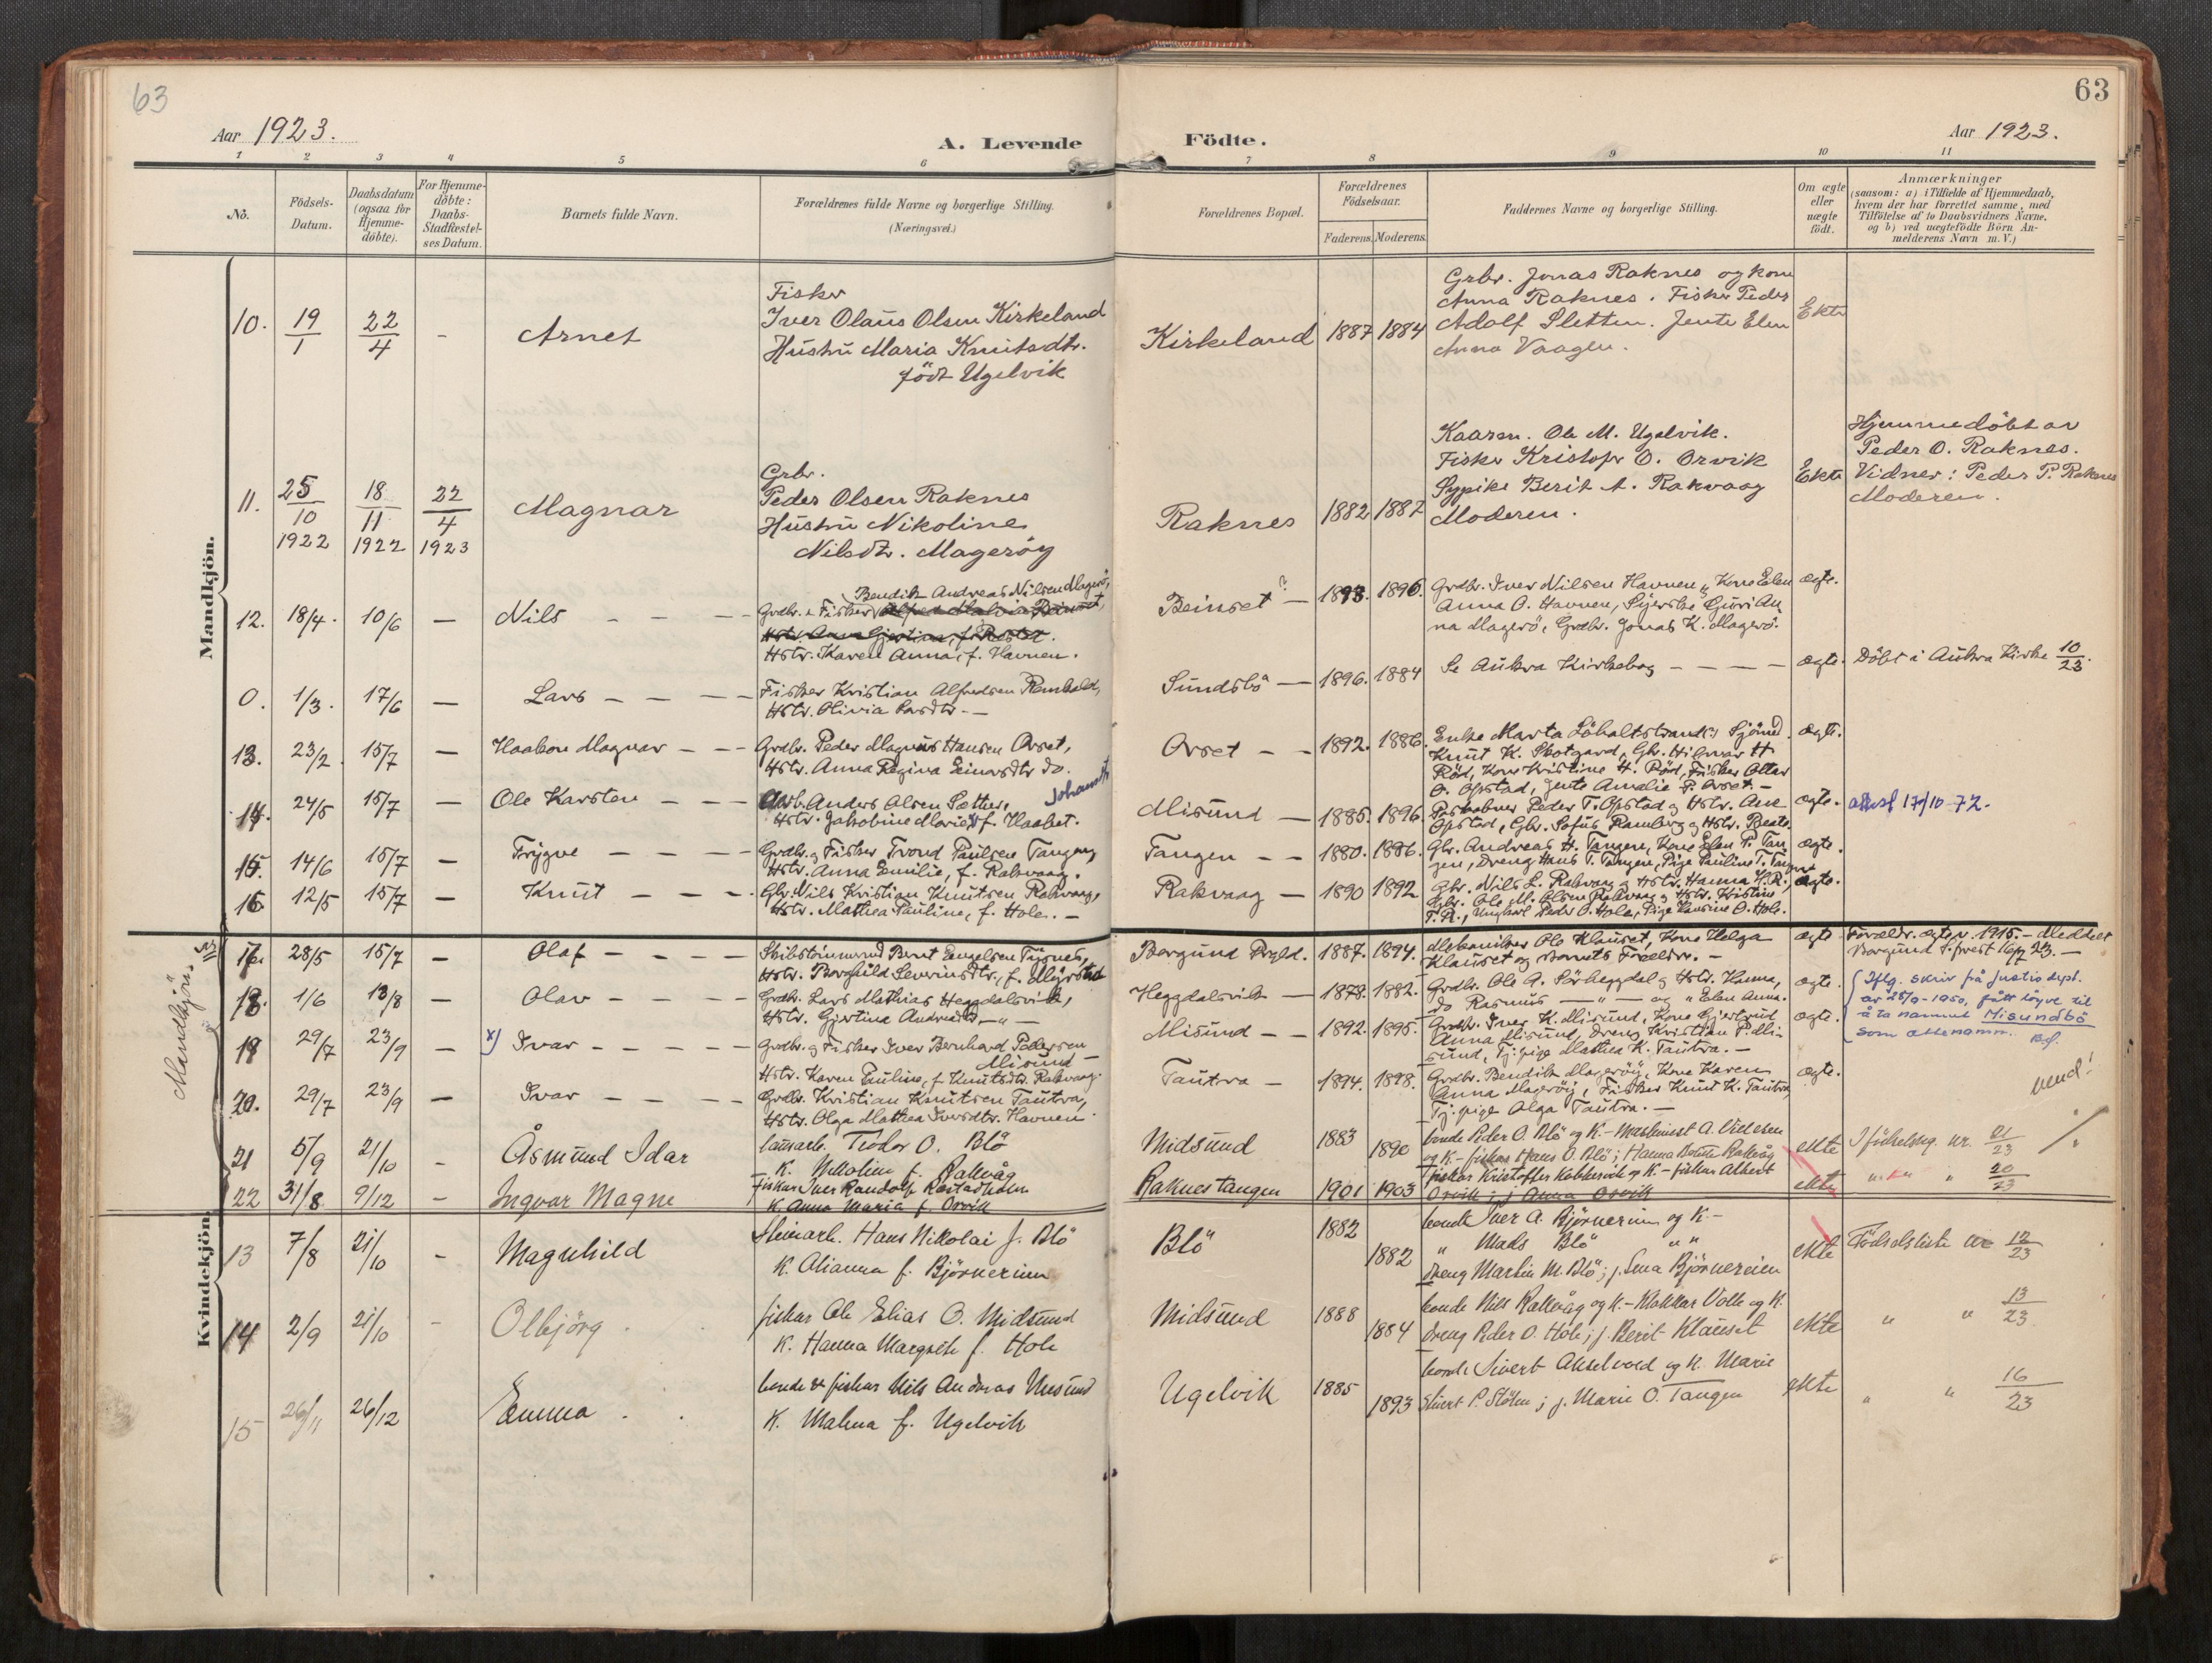 63
63
Aar 1923.
A. Levende
Födte.
Aar 1923.
1 2 3 4 5 6 7 8 9 10 11
No.
Födsels-
Datum.
Daabsdatum
(ogsaa for
Hjemme-
döbte).
For Hjemme-
döbte:
Daabs-
Stadfæstel-
ses Datum.
Barnets fulde Navn.
Forældrenes fulde Navne og borgerlige Stilling.
(Næringsvei.)
Forældrenes Bopæl.
Forældrenes
Födselsaar.
Faderens. Moderens.
Faddernes Navne og borgerlige Stilling.
Om ægte
eller
uægte
födt.
Anmærkninger
(saasom: a) i Tilfælde af Hjemmedaab,
hvem der har forrettet samme, med
Tilföielse af to Daabsvidners Navne,
og b) ved uægtefödte Börn An-
melderens Navn m. V.)
Mandkjön.
10. 19/1 22/4 - Arnet
Fisker
Iver Olaus Olsen Kirkeland
Hustru Maria Knutsdtr.
født Ugelvik
Kirkeland 1887 1884
Grbr. Jonas Raknes og kone
Anna Raknes. Fisker Peder
Adolf Sletten. Jente Elen
Anna Vaagen.
Ekte
11. 25/10 1922 18/11 1922 22/4 1923 Magnar
Grbr.
Peder Olsen Raknes
Hustru Nikoline
Nilsdtr. Magerøy
Raknes 1882 1887
Kaarm. Ole M. Ugelvik.
Fisker Kristofer O. Orvik
Sypike Berit A. Rakvaag
Moderen.
Ekte
Hjemmedöbt av
Peder O. Raknes.
Vidner: Peder P. Raknes
Moderen.
12. 18/4. 10/6 - Nils
Bendik Andreas Nilsen Magerö,
Grdbr. & Fisker
Hstr. Karen Anna, f. Havnen.
Beinset ? 1893. 1896.
Grdbr. Iver Nilsen Havnen, Kone Elen
Anna O. Havnen, Syerske Guri An
na Magerö, Grdbr. Jonas K. Magerö.
ægte.
0. 1/3. 17/6 - Lars
Fisker Kristian Alfredsen
Hstr. Olivia Larsdtr. -
Sundsbö - 1896. 1884
Se Aukra Kirkebog - - - -
ægte.
Döbt i Aukra Kirke 10/23.
13. 23/2. 15/7 - Haakon Magnar
Grdbr. Peder Magnus Hansen Orset,
Hstr. Anna Regina Einarsdtr do.
Orset - - 1892. 1886.
Enke Marta
Knut K. Skotgard, Gbr. Hilmar H.
Röd, Kone Kristine H. Röd, Fisker Ottar
O. Opstad, Jente Amalie P. Orset. -
ægte.
14. 24/5 15/7 - Ole Karsten
Anders Olsen Sæther, Johansdtr
Hstr. Jakobine Marie f. Haabet.
Misund - 1885. 1896.
Peder T. Opstad og Hstr. Ane
Opstad, Gbr. Sofus Ramberg og Hstr. Beate.
ægte.
attest 17/10-72.
15. 14/6 15/7 - Trygve
Grdbr. og Fisker Trond Paulsen Tangen,
Hstr. Anna Emilie, f. Rakvaag.
Tangen - - 1880. 1886.
Gbr. Andreas H. Tangen, Kone Elen P. Tan
gen, Dreng Hans T. Tangen, Pige Pauline T. Tangen
ægte.
16 12/5 15/7 - Knut
Gbr. Nils Kristian Knutsen Rakvaag,
Hstr. Mathea Pauline, f. Hole. -
Rakvaag - 1890 1892
Gbr. Nils L. Rakvaag og Hstr. Hanna K. R.,
Gbr. Ole M. Olsen Rakvaag og Hstr. Kristine
T. R., Ungkarl Peder O. Hole, Pige Hansine O. Hole.
ægte.
Mandkjön
17 28/5 15/7 - Olaf
Skibstömmermd Bernt Engelsen
Hstr. Borghild Severinsdtr,
Borgund Prgld. 1887. 1894.
Mekaniker Ole Klauset, Kone Helga
Klauset og Barnets Forældre. -
ægte
Forældr. ægtev. 1915. - Meddelt
Borgund S.prest 16/7 23. -
18. 1/6 13/8 - Olav
Grdbr. Lars Mathias Heggdalsvik,
Hstr. Gjertine Andreasdtr - " -
Heggdalsvik - 1878. 1882.
Grdbr. Ole A. Sörheggdal og Hstr. Hanna,
do Rasmus - " - og " Elen Anna.
ægte.
Iflg. skriv frå Justisdept.
av 28/9-1950, fått löyve til
å ta namnet Misundbö
som ettenamn.
19 29/7 23/9 - x) Ivar
Grdbr. og Fisker Iver Bernhard Pedersen
Misund -
Hstr. Karen Pauline, f. Knutsdtr. Rakvaag.
Misund - - 1892. 1895.
Grdbr. Iver K. Misund, Kone Gjertrud
Anna Misund, Dreng Kristian P. Mi-
sund, Tj.pige Mathea K. Tautra. -
ægte.
20. 29/7 23/9 - Ivar
Grdbr. Kristian Knutsen Tautra,
Hstr. Olga Mathea Iversdtr. Havnen.
Tautra - 1894. 1898.
Grdbr. Bendik Mageröy, Kone Karen
Anna Mageröy, Fisker Knut K. Tautra,
Tj.pige Olga Tautra. -
ægte.
vend!
21 5/9 21/10 - Åsmund Idar
lausarb. Teodor O. Blö
K. Nikoline f. Rakvåg
Midsund 1883 1890
bonde Peder O. Blö og K. - Maskinist A.
og K. - fiskar Hans O. Blö; j. Hanna Rakvåg
ekte
I födselsreg. nr. 21/23
22 31/8 9/12 - Ingvar Magne
fiskar Iver Randolf
K. Anna Maria f. Orvik
Raknestangen 1901 1903
fiskar Kristoffer og K - fiskar Albert
Orvik; j. Anna Orvik
ekte
" " 20/23
Kvindekjön.
13 7/8 21/10 - Magnhild
Hans Nikolai J. Blö
K. Olianna f. Bjørnereim
Blö 1882 1882
bonde Iver A. Bjørnereim og K -
" Mads Blö " "
dreng Martin M. Blö; j. Lena Bjørnereim
ekte
Födselsliste nr 12/23
14 2/9 21/10 - Olbjörg
fiskar Ole Elias O. Midsund
K. Hanna Margrete f. Hole
Midsund 1888 1884
bonde Nils Rakvåg og K. - Klokkar Volle og K.
dreng Peder O. Hole; j. Berit Klauset
ekte
" " 13/23
15 26/11 26/12 - Emma
bonde & fiskar Nils Andreas
K. Malena f. Ugelvik
Ugelvik 1885 1893
bonde Sivert Akselvoll og K. Marie
Sivert P. Stölen; j. Marie O. Tangen
ekte
" " 16/23